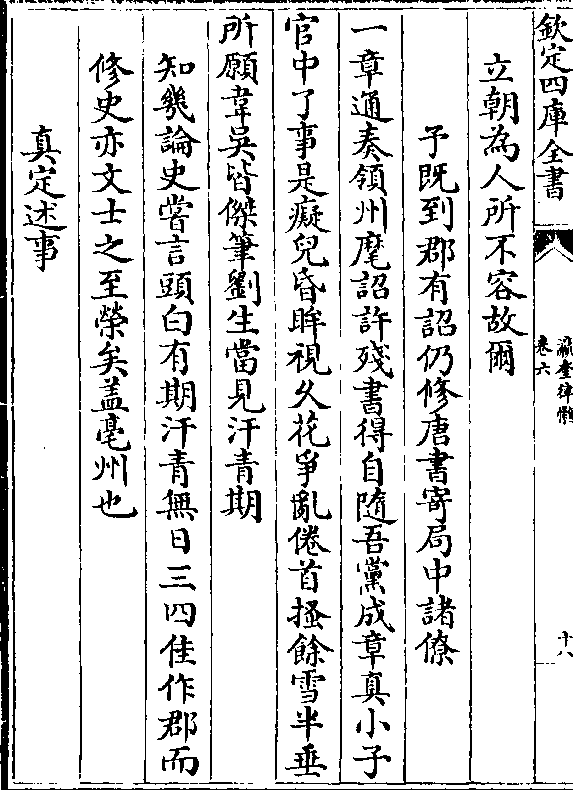 欽定四庫全書
瀛奎律髓
卷六
十八
立朝為人所不容故爾
予既到郡有詔仍修唐書寄局中諸僚
一章通奏領州麾詔許殘書得自隨吾黨成章真小子
官中了事是癡兒昏眸視久花爭亂倦首搔餘雪半垂
所願韋吳皆傑筆劉生當見汗青期
知幾論史嘗言頭白有期汗青無日三四佳作郡而
修史亦文士之至榮矣蓋亳州也
真定述事